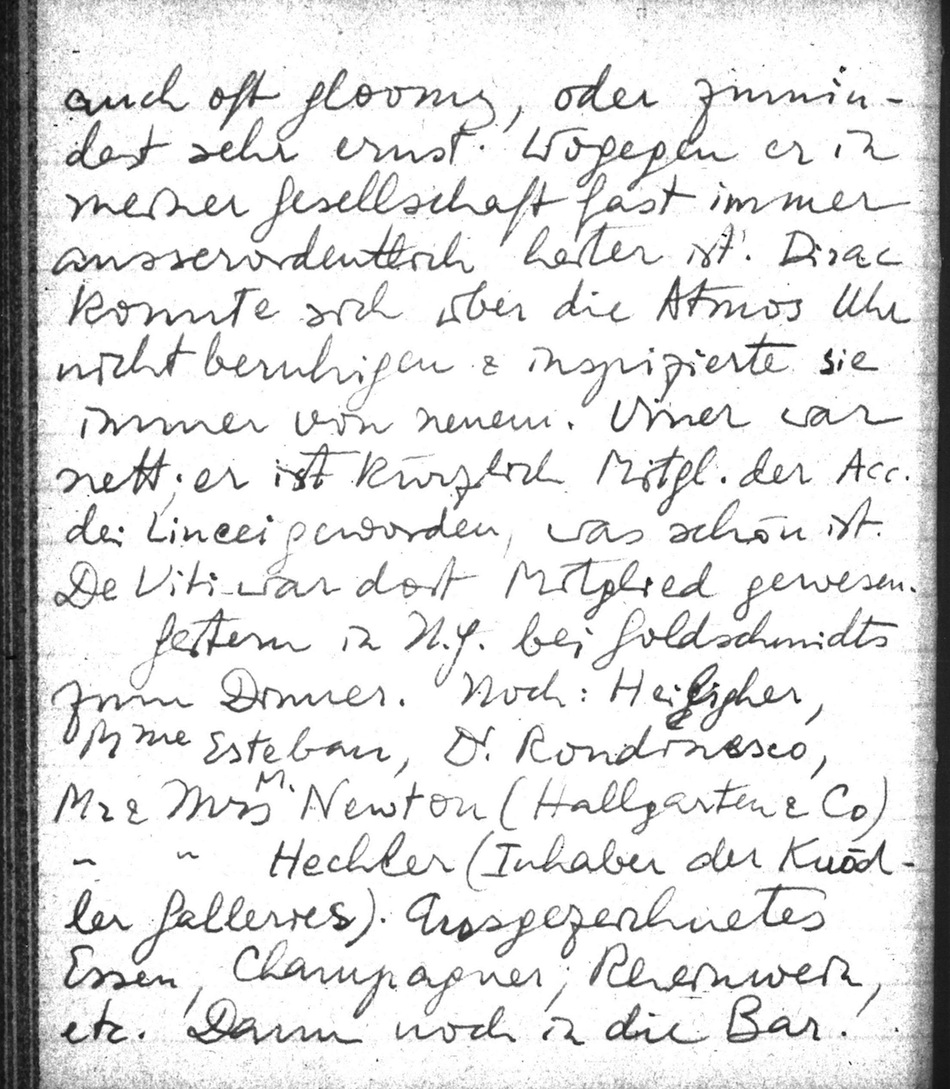 auch oft gloomy, oder zumin-
dest sehr ernst. Wogegen er in
meiner Gesellschaft fast immer
ausserordentlich heiter ist! Dirac
konnte sich über die Atmos Uhr
nicht beruhigen & inspizierte sie
immer von neuem. Viner war
nett; er ist kürzlich Mitgl. der Acc.
dei Lincei geworden, was schön ist.
De Viti war dort Mitglied gewesen.
Gestern in N.Y. bei Goldschmidts
zum Dinner. Noch:
Mme Esteban, Dr. Rondinesco,
Mr & Mrs M. Newton (Hallgarten & Co)
" " Hechler (Inhaber der Knöd-
ler Galleries). Ausgezeichnetes
Essen, Champagner, Rheinwein,
etc. Dann noch in die Bar.